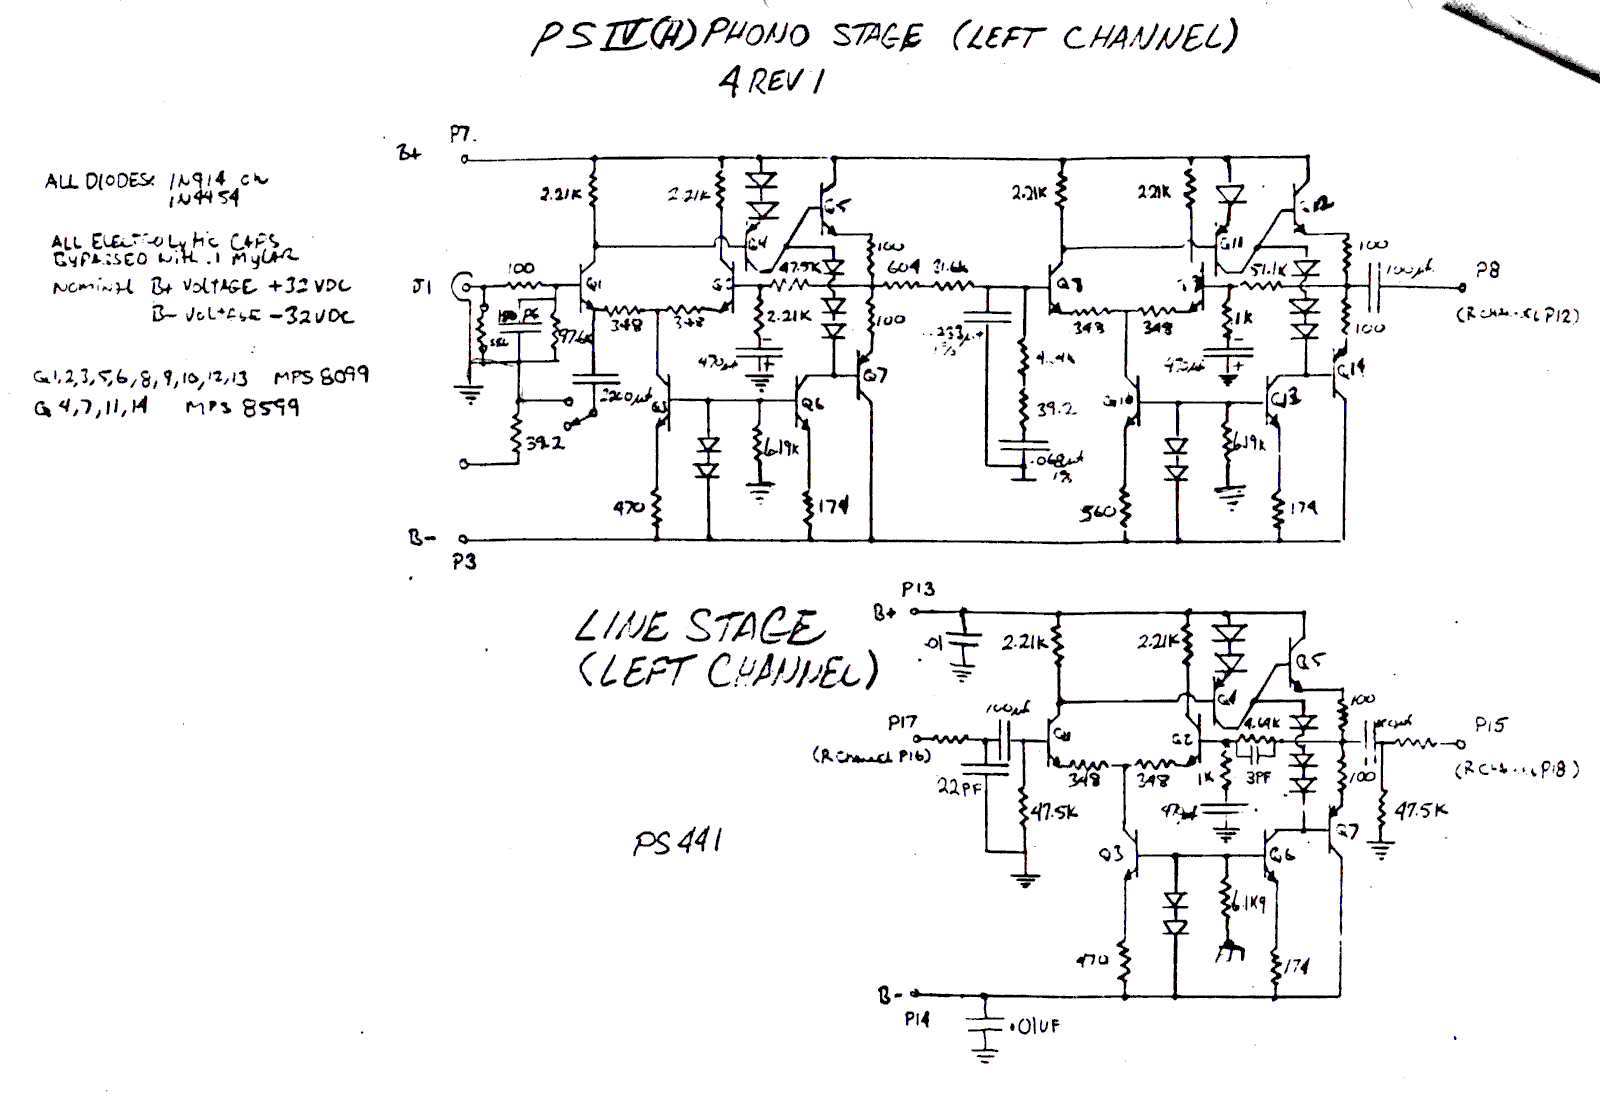 PS IV(H) PHONO STAGE (LEFT CHANNEL)
4 REV 1
P7.
B+
ALL DIODES: 1N914 OR
1N4454
ALL ELECTROLYTIC CAPS
BYPASSED WITH .1 MYLAR
NOMINAL B+ VOLTAGE +32 VDC
B- VOLTAGE -32VDC
Q1,2,3,5,6,8,9,10,12,13 MPS 8099
Q 4,7,11,14 MPS 8599
2.21K
2.21K
Q4
Q5
2.21K
221K
Q11
Q12
100
100
J1
100
Q1
47.5K
604
31.6K
Q8
51.1K
100µf
P8
(R CHANNEL P12)
348
348
2.21K
100
348
348
1K
100
PF
97.6K
470µf
1%
4.4K
470µf
Q7
Q14
2200µf
Q3
Q6
39.2
Q10
Q13
39.2
6.19K
.068µf
1%
6.19K
470
174
560
174
B-
P3
P13
B+
LINE STAGE
(LEFT CHANNEL)
.01
2.21K
2.21K
Q5
Q4
100µf
100
P17
(R Channel P16)
Q1
Q2
4.64K
P15
(R Channel P18)
22PF
348
348
1K
3PF
100
47.5K
47.5K
Q7
PS 441
Q3
Q6
6.1K9
470
174
B-
P14
.01UF